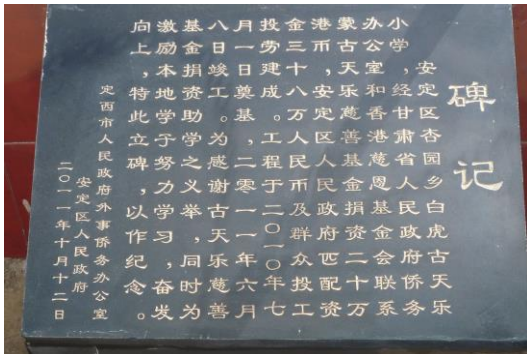 碑记
安定区杏园乡白虎古天乐
小学，经甘肃省人民政府侨务
办公室和香港慈恩基金会联系
蒙古天乐慈善基金捐资二十万
港币，安定区人民政府匹配资
金三十八万人民币及群众投工
投劳建成。工程于二〇一〇年七
月一日奠基，二零一一年六月
八日竣工。为感谢古天乐慈善
基金捐资助学之义举，同时为
激励本地学子努力学习，奋发
向上，特此立碑，以作纪念。
定西市人民政府外事侨务办公室
安定区人民政府
二〇一一年十月十二日